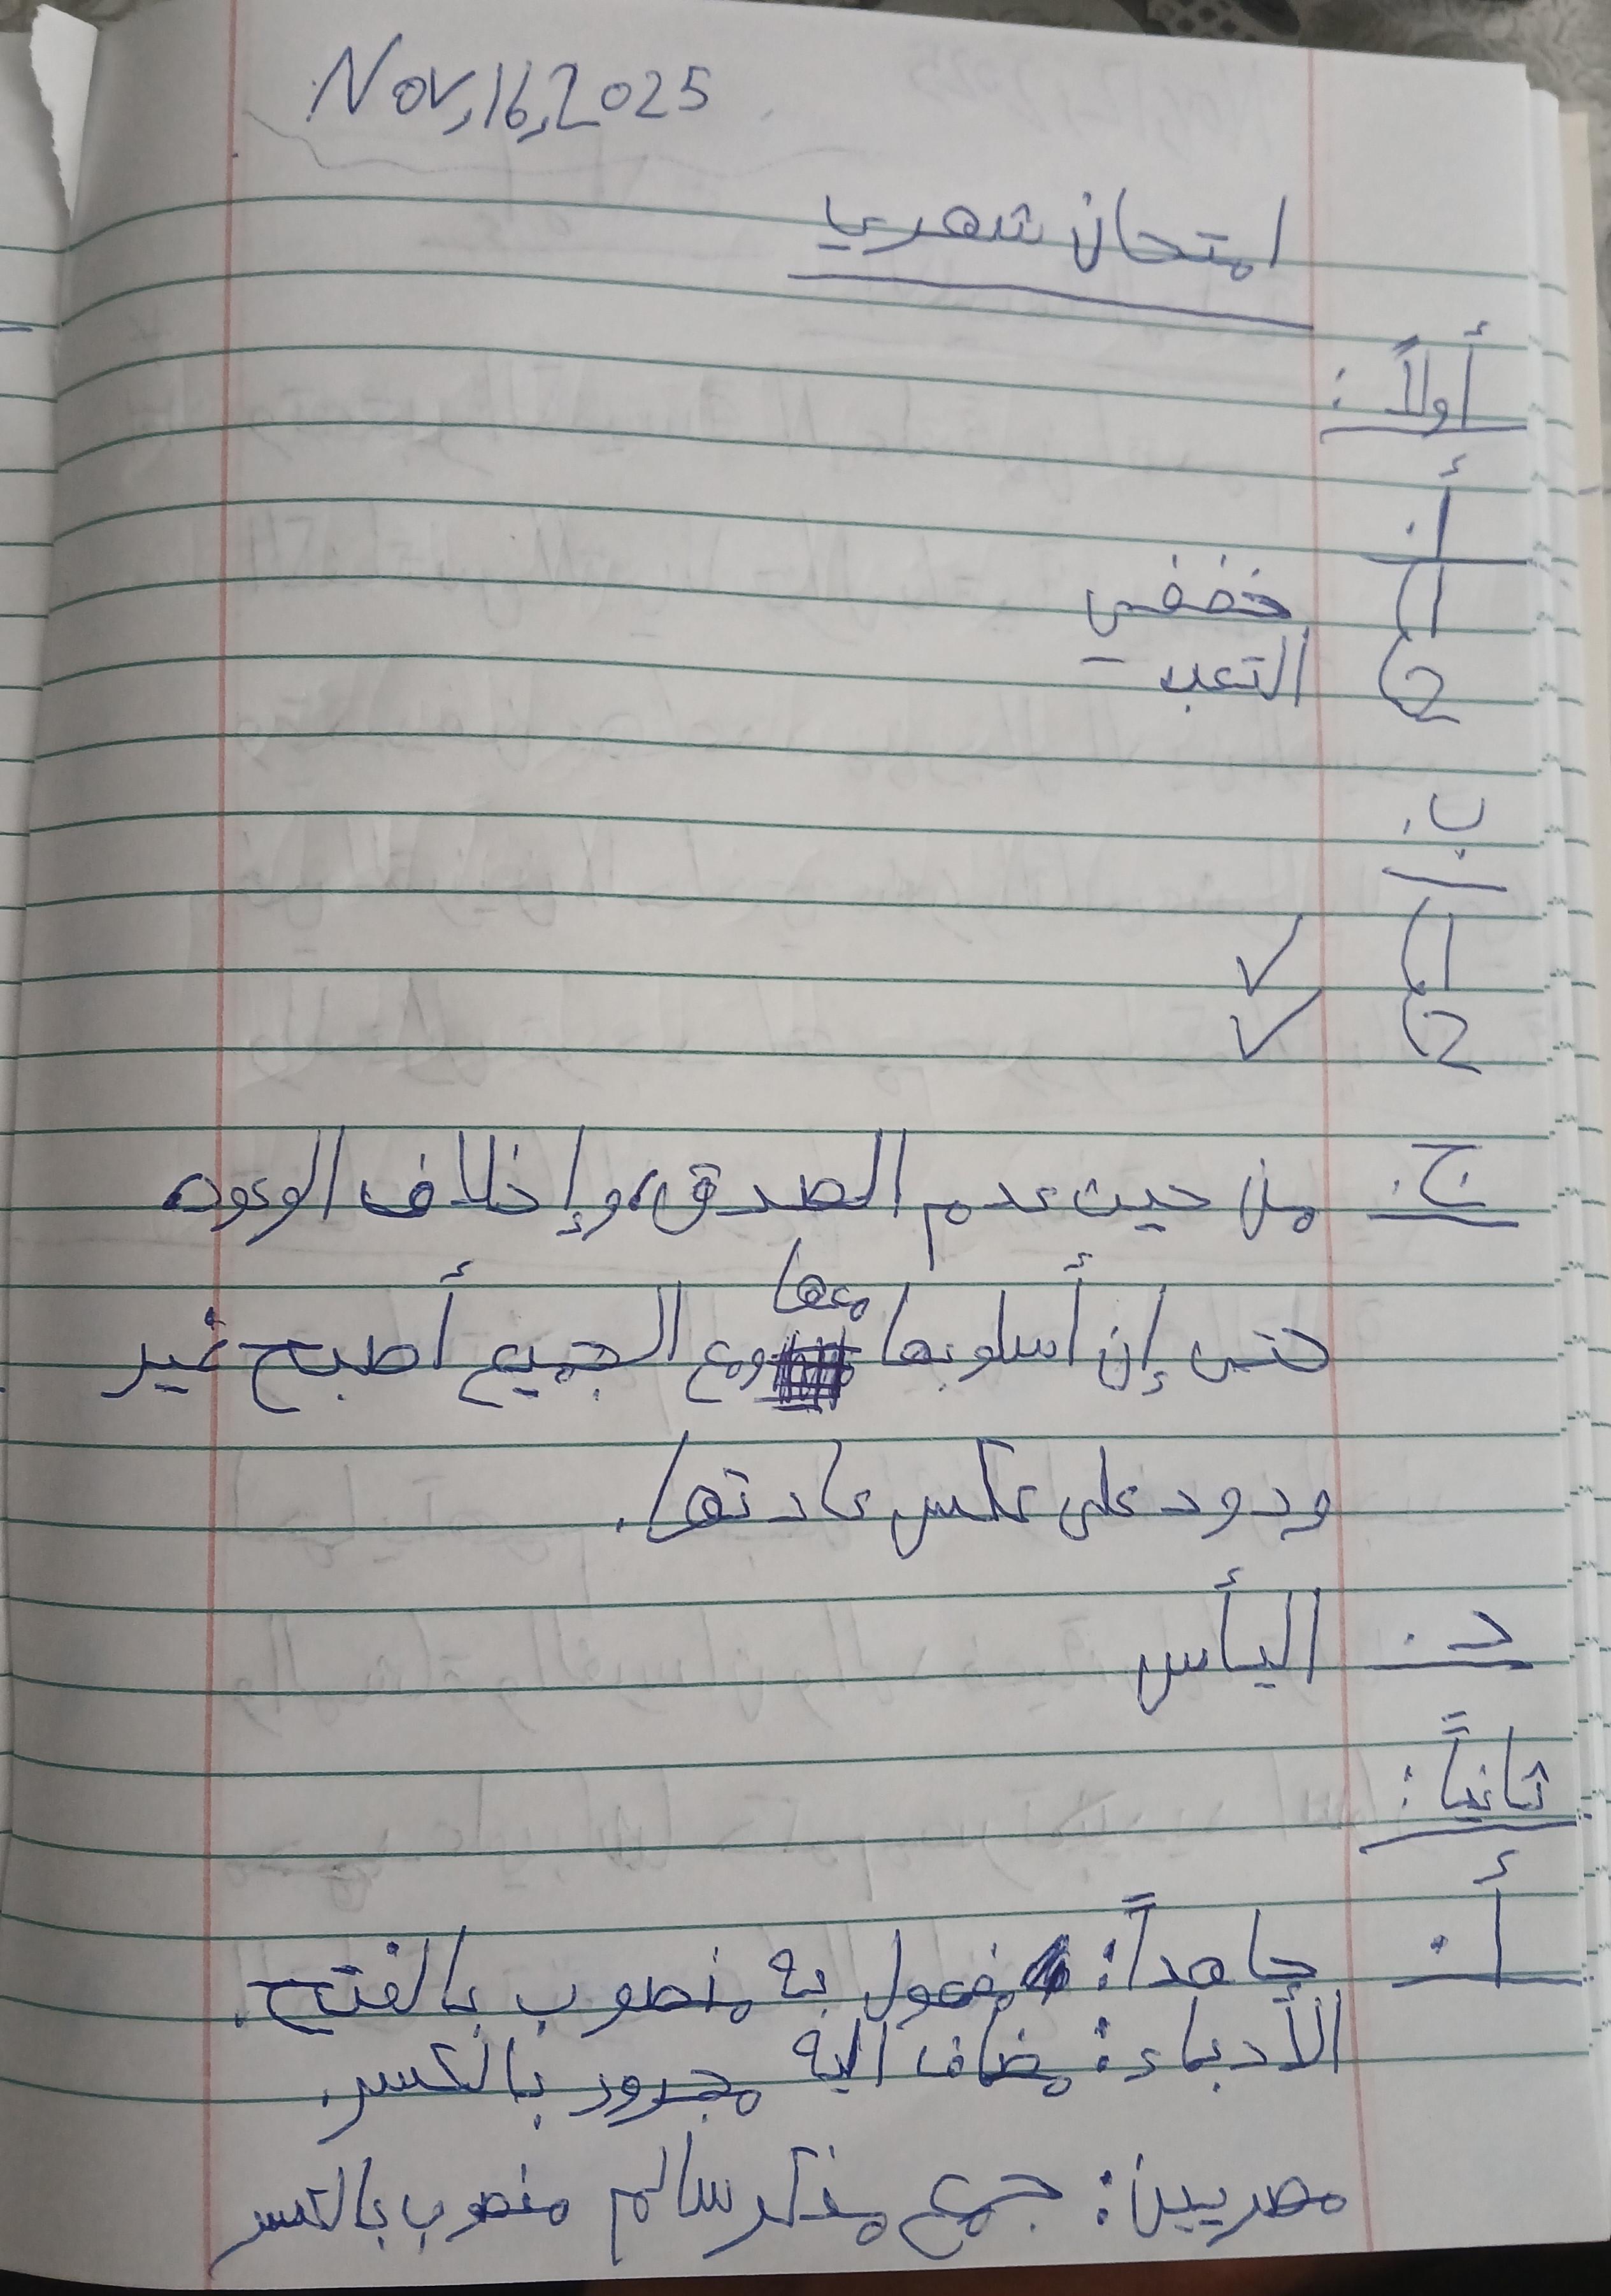 Nov,16,2025
امتحان شهري
أولاً:
أ.
1) خففي
2) التعب -
ب.
1) ✓
2) ✓
ج. من حيث عدم الصدق، وإخلاف الوعود
حتى إن أسلوبها معها ومع الجميع أصبح غير
ودود على عكس عادتها.
د. اليأس
ثانياً:
أ. جاهداً: مفعول به منصوب بالفتح.
الأدباء: مضاف اليه مجرور بالكسر.
مصريين: جمع مذكر سالم منصوب بالكسر